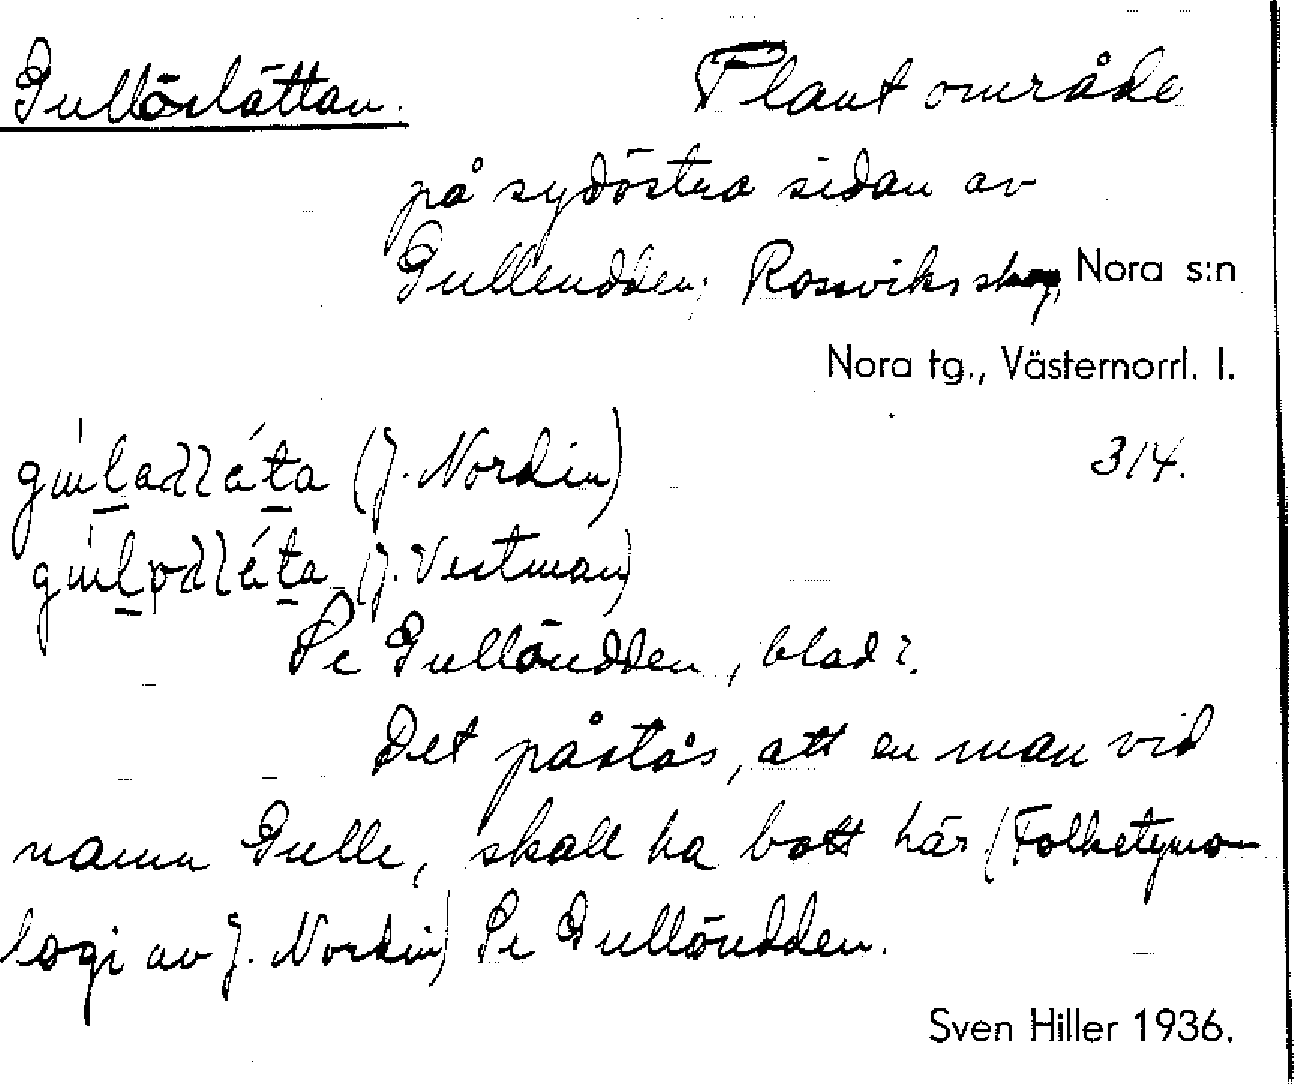 Gullörlättan. Plant område
på sydöstra sidan av
Gullendden; Rossviks skog, Nora s:n
Nora tg., Västernorrl. l.
(J. Nordin) 314.
(J. Vestman)
Se Gullöudden, blad 2.
Det påstås, att en man vid
namn Gulle, skall ha bott här (Folketymo-
logi av J. Nordin) Se Gullöudden.
Sven Hiller 1936.